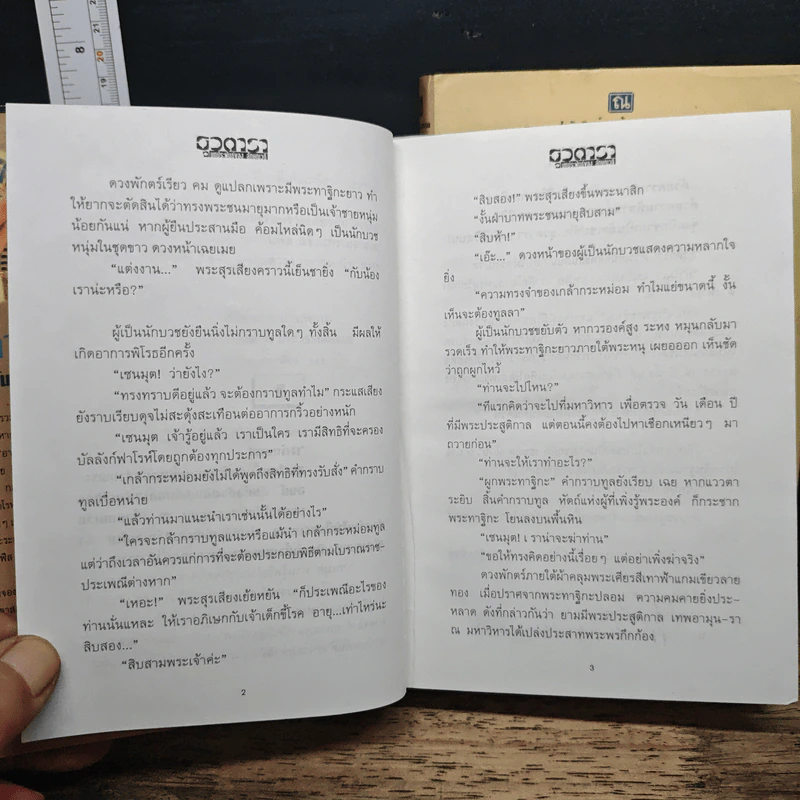 ดวงพักตร์เรียว คม ดูแปลกเพราะมีพระทาฐิกะยาว ทำ
ให้ยากจะตัดสินได้ว่าทรงพระชนมายุมากหรือเป็นเจ้าชายหนุ่ม
น้อยกันแน่ หากผู้ยืนประสานมือ ค้อมไหล่นิดๆ เป็นนักบวช
หนุ่มในชุดขาว ดวงหน้าเฉยเมย
“แต่งงาน...” พระสุรเสียงคราวนี้เย็นชายิ่ง “กับน้อง
เราน่ะหรือ?”
ผู้เป็นนักบวชยังยืนนิ่งไม่กราบทูลใดๆ ทั้งสิ้น มีผลให้
เกิดอาการพิโรธอีกครั้ง
“เซนมุต! ว่ายังไง?”
“ทรงทราบดีอยู่แล้ว จะต้องกราบทูลทำไม” กระแสเสียง
ยังราบเรียบดุจไม่สะดุ้งสะเทือนต่ออาการกริ้วอย่างหนัก
“เซนมุต เจ้ารู้อยู่แล้ว เราเป็นใคร เรามีสิทธิที่จะครอง
บัลลังก์ฟาโรห์โดยถูกต้องทุกประการ”
“เกล้ากระหม่อมยังไม่ได้พูดถึงสิทธิที่ทรงรับสั่ง” คำกราบ
ทูลเบื่อหน่าย
“แล้วท่านมาแนะนำเราเช่นนั้นได้อย่างไร”
“ใครจะกล้ากราบทูลแนะหรือแม้นำ เกล้ากระหม่อมทูล
แต่ว่าถึงเวลาอันควรแก่การที่จะต้องประกอบพิธีตามโบราณราช-
ประเพณีต่างหาก”
“เหอะ!” พระสุรเสียงเย้ยหยัน “ก็ประเพณีอะไรของ
ท่านนั่นแหละ ให้เราอภิเษกกับเจ้าเด็กขี้โรค อายุ...เท่าไหร่นะ
สิบสอง...”
“สิบสามพระเจ้าค่ะ”
2
“สิบสอง!” พระสุรเสียงขึ้นพระนาสิก
“งั้นฝ่าบาทพระชนมายุสิบสาม”
“สิบห้า!”
“เอ๊ะ...” ดวงหน้าของผู้เป็นนักบวชแสดงความหลากใจ
ยิ่ง
“ความทรงจำของเกล้ากระหม่อม ทำไมแย่ขนาดนี้ งั้น
เห็นจะต้องทูลลา”
ผู้เป็นนักบวชขยับตัว หากวรองค์สูง ระหง หมุนกลับมา
รวดเร็ว ทำให้พระทาฐิกะยาวภายใต้พระหนุ เผยอออก เห็นชัด
ว่าถูกผูกไหว้
“ท่านจะไปไหน?”
“ทีแรกคิดว่าจะไปที่มหาวิหาร เพื่อตรวจ วัน เดือน ปี
ที่มีพระประสูติกาล แต่ตอนนี้คงต้องไปหาเชือกเหนียวๆ มา
ถวายก่อน”
“ท่านจะให้เราทำอะไร?”
“ผูกพระทาฐิกะ” คำกราบทูลยังเรียบ เฉย หากแววตา
ระยิบ สิ้นคำกราบทูล หัตถ์แห่งผู้ที่เพิ่งรู้พระองค์ ก็กระชาก
พระทาฐิกะ โยนลงบนพื้นหิน
“เซนมุต! เราน่าจะฆ่าท่าน”
“ขอให้ทรงคิดอย่างนี้เรื่อยๆ แต่อย่าเพิ่งฆ่าจริง”
ดวงพักตร์ภายใต้ผ้าคลุมพระเศียรสีเทาฟ้าแกมเขียวลาย
ทอง เมื่อปราศจากพระทาฐิกะปลอม ความคมคายยิ่งประ-
หลาด ดังที่กล่าวกันว่า ยามมีพระประสูติกาล เทพอามุน-รา
ณ มหาวิหารได้เปล่งประสาทพระพรกึกก้อง
3
ณ
8
19
20
21